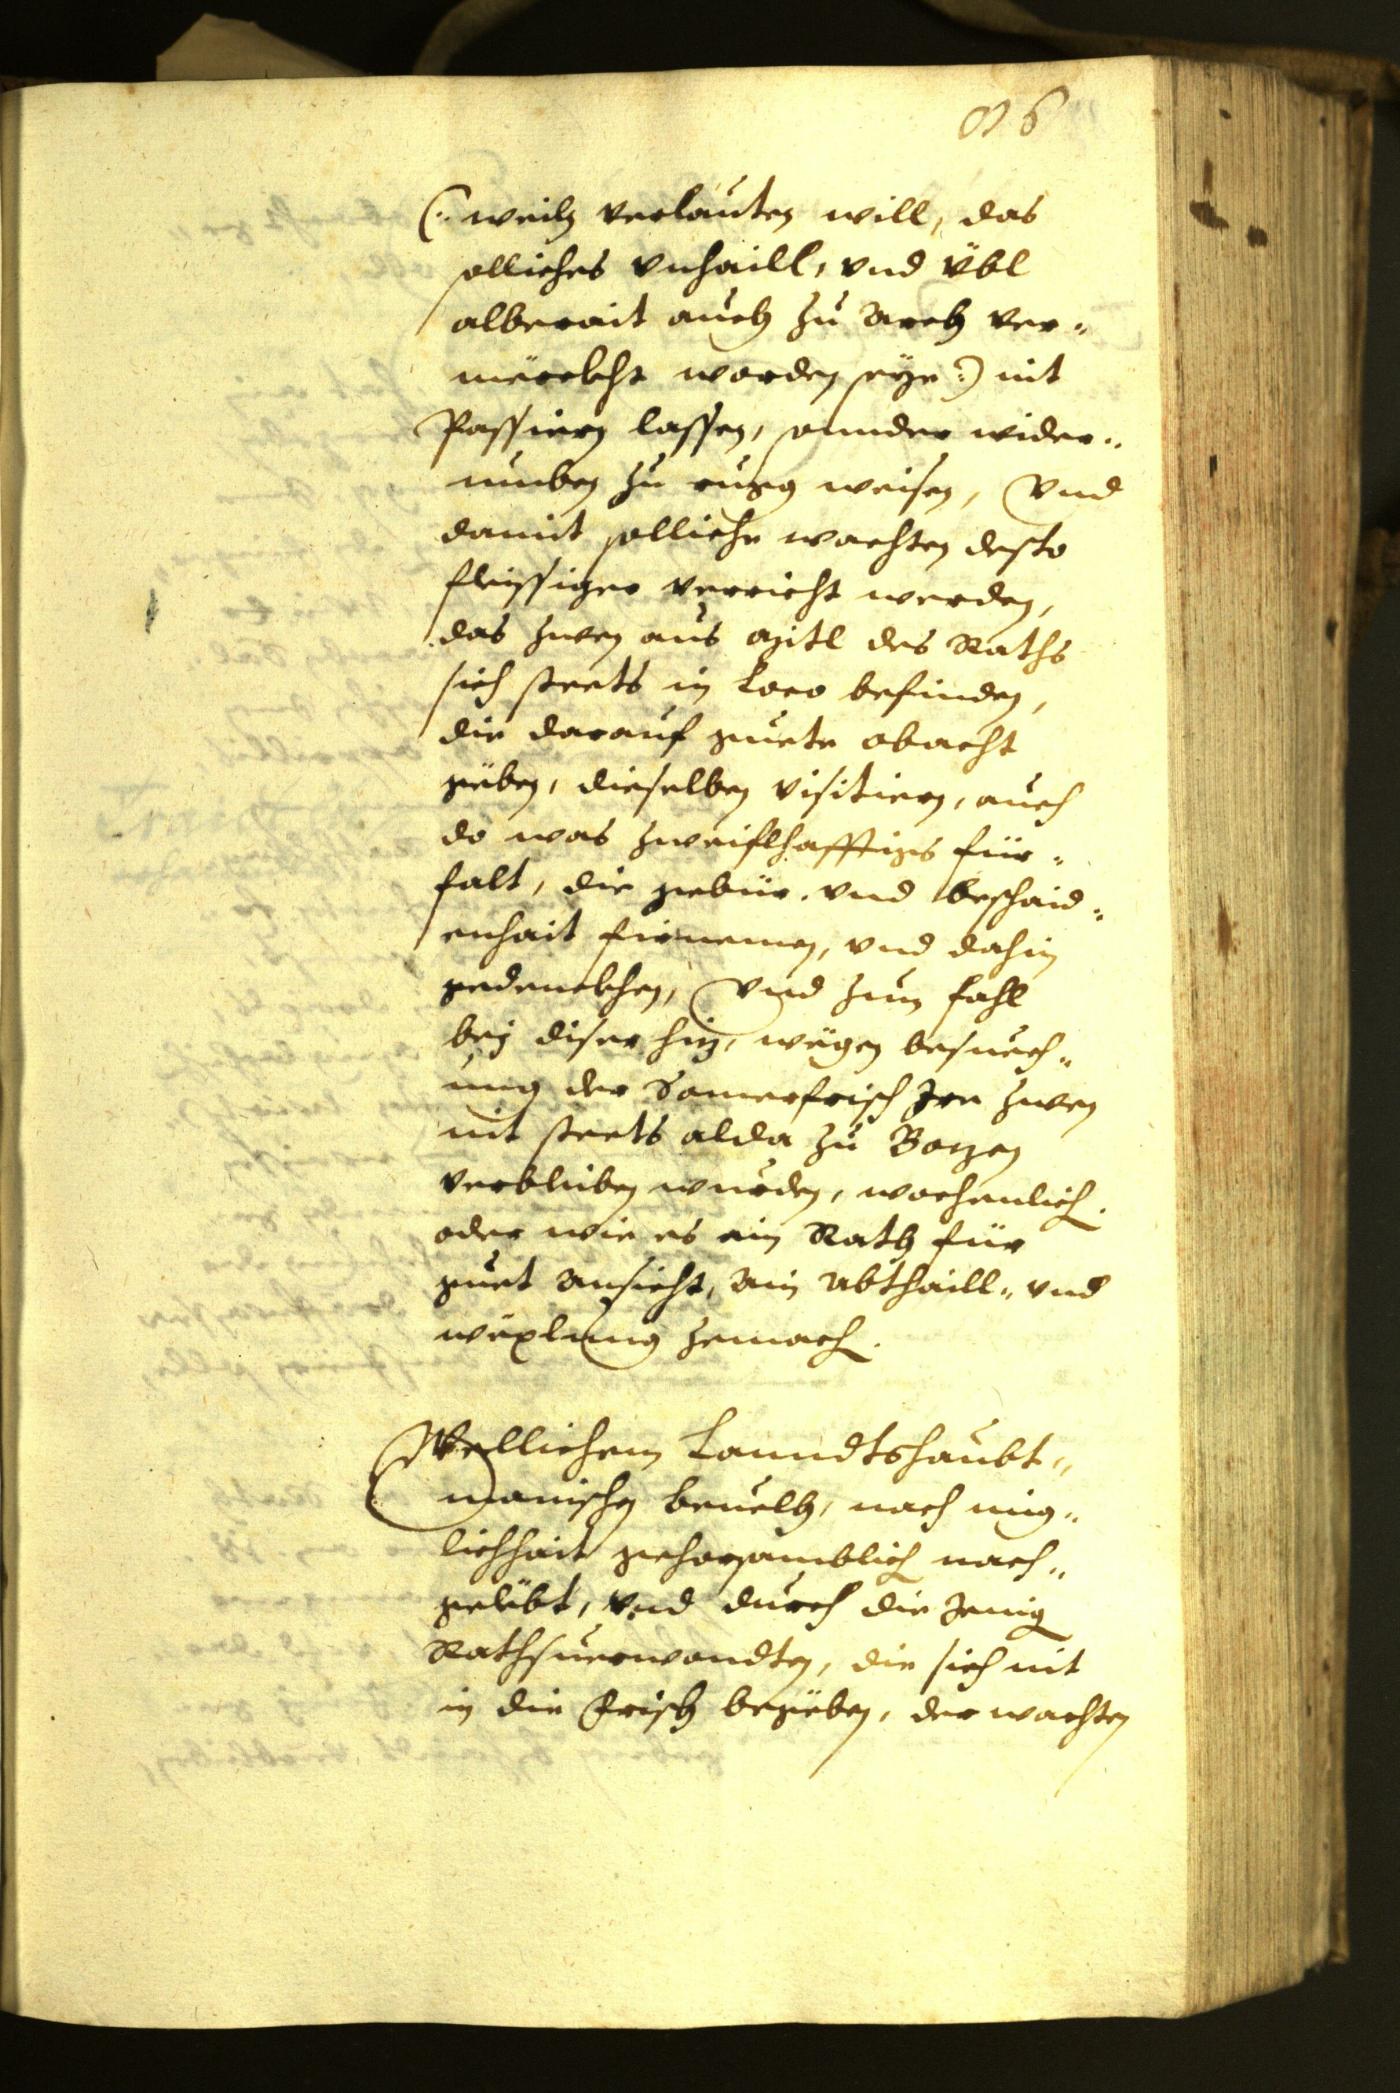 96
(: weiln verlauten will, das
solliches vnhaill, vnd übl
alberait auch zu Arch ver¬
mörckht worden seye :) nit
Passiern lassen, sonnder wider¬
umben zu rugg weisen, Vnd
damit solliche wachten desto
fleissiger verricht werden,
das zwen aus mitl des Raths
sich steets in Loco befinden,
die darauf guete obacht
geben, dieselben visitiern, auch
do was zweiflhafftigs für¬
falt, die gebür, vnd beschaid¬
enhait firnemen, vnd dahin
gedenckhen, Vnd zum fahl
bey diser hiz, wegen besuech¬
ung der Somerfrisch Jre zwen
nit steets alda zu Bozen
verbliben wurden, wochenlich
oder wie es ein Rath für
guet ansicht, ain Abthaill- vnd
wexlung zemach.
Wellichem Lanndtshaubt¬
manischen beuelh, nach mig¬
lichhait gehorsamblich nach¬
gelebt, vnd durch die Jenig
Rathsuerwandten, die sich nit
in die Frisch begeben, der wachten